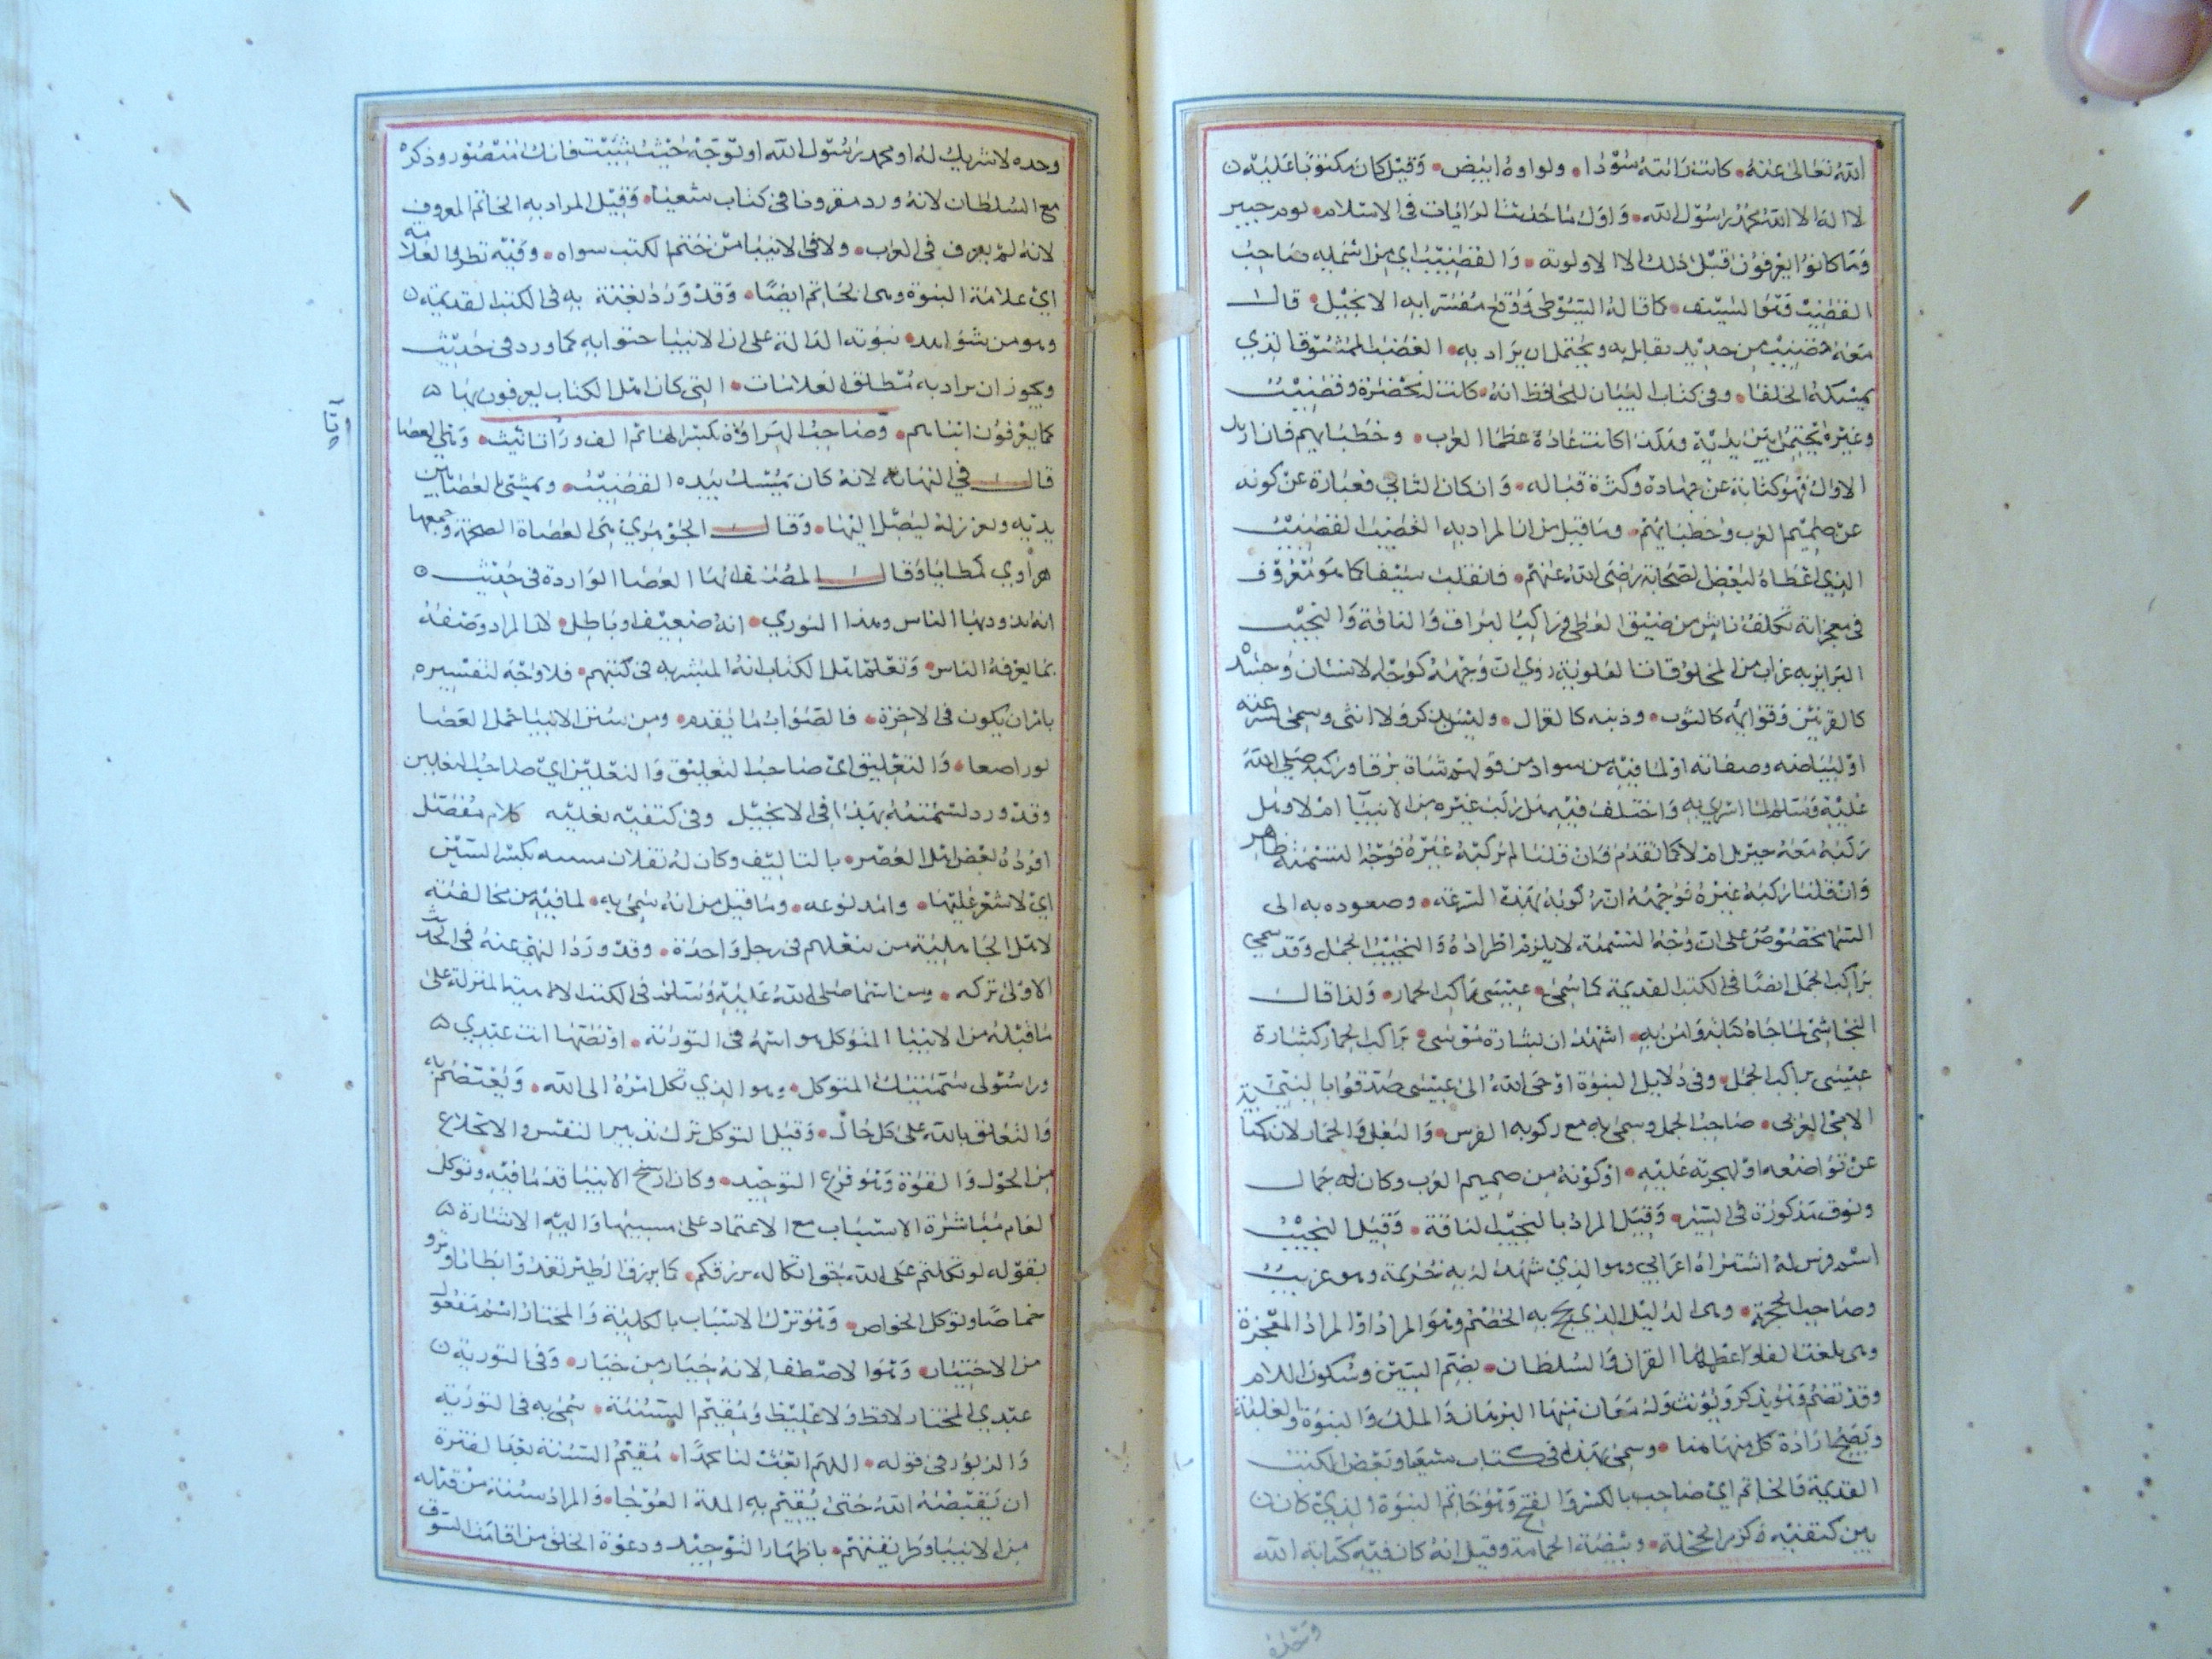 الله تعالى عنه كانت رايته سودا ولواوه ابيض وقيل كان مكتوبا عليه
لا اله الا الله محمد رسول الله واول ما حدثت الرايات في الاسلام يوم خيبر
وما كانوا يعرفون قبل ذلك الا الالوية والقضيب اي من اسمايه صاحب
القضيب وهو السيف كما قاله السيوطي ووقع مفسرا به الانجيل قال
معه قضيب من حديد يقابل به ويحتمل ان يراد به القضيب الممشوق الذي
يمسكه الخلفا وفي كتاب البيان للجاحظ انه كانت له مخصرة وقضيب
وغيره يحتمى بين يديه وهكذا كانت عادة عظما العرب وخطبايهم فان اريد
الاول فهو كناية عن جهاده وكثرة قتاله وان كان الثاني فعبارة عن كونه
عن صميم العرب وخطبايهم وما قيل من ان المراد به القضيب القضيب
الذي اعطاه لبعض الصحابة رضي الله عنهم فانقلب سيفا كما هو معروف
في معجزاته تكلف ناش من ضيق العطن وراكب البراق والناقة والنجيب
البراق دابة من المخلوقات العلوية روي ان وجهه كوجه الانسان وجسده
وقوايمه كالثور وذنبه كالغزال وليس بذكر ولا انثى وسمي لسرعته
او لبياضه وصفايه او لما فيه من سواد من قولهم شاة برقا وركبه صلى الله
عليه وسلم لما اسري به واختلف فيه هل ركبه غيره من الانبيا ام لا وهل
ركبه معه جبريل ام لا كما تقدم فان قلنا لم يركبه غيره فوجه التسمية ظاهر
وان قلنا ركبه غيره فوجهه ان ركوبه بهذه السرعة وصعوده به الى
السما مخصوص على ان وجه التسمية لا يلزم اطراده والنجيب الجمل وقد سمي
براكب الجمل ايضا في الكتب القديمة كما سمي عيسى راكب الحمار ولذا قال
النجاشي لما جاه كتابه وامن به اشهد ان بشارة موسى براكب الحمار كبشارة
عيسى براكب الجمل وفي دلايل النبوة اوحى الله الى عيسى صدقوا بالنبي
الامي العربي صاحب الجمل وسمي به مع ركوبه الفرس والبغل والحمار لانه كنا
عن تواضعه او لهجرته عليه او كونه من صميم العرب وكان له جمال
ونوق مذكورة في السير وقيل المراد بالنجيب الناقة وقيل النجيب
اسم فرس له اشتراه اعرابي وهو الذي شهد له به خزيمة وهو غريب
وصاحب الحجة وهي الدليل الذي يحج به الخصم وهو المراد اذ المراد المعجزة
وهي بلغت الفا واعظمها القران والسلطان بضم السين وسكون اللام
وقد تضم وهو يذكر ويونث وله معان منها البرهان والملك والنبوة والغلبة
ويصح ارادة كل منها هنا وسمي بهذا في كتاب شعيا وبعض الكتب
القديمة والخاتم اي صاحب بالكسر والفتح وهو خاتم النبوة الذي كان
بين كتفيه كزر الحجلة وبيضة الحمامة وقيل انه كان فيه كتابة الله
وحده
وحده لا شريك له او محمد رسول الله او توجه حيث شيت فانك منصور وذكره
مع السلطان لانه ورد مقرونا في كتاب شعيا وقيل المراد به الخاتم المعروف
لانه لم يعرف في العرب ولا في الانبيا من ختم الكتب سواه وفيه نظر والعلامة
اي علامة النبوة وهي الخاتم ايضا وقد ورد بعينه به في الكتب القديمة
وهو من شواهد نبوته الدالة على ان الانبيا ختموا به كما ورد في حديث
ويجوز ان يراد به مطلق العلامات التي كان اهل الكتاب يعرفون بها
كما يعرفون ابناهم وصاحب الهراوة بكسر الهاثم الف ورا تانيث وهي العصا
قال في النهاية لانه كان يمسك بيده القضيب ويمشي بالعصا بين
يديه وتغرز له ليصل اليها وقال الجوهري هي العصاة الضخمة وجمعها
هراوي كمطايا وقال المصنف انها العصا الواردة في حديث
انه يذود بها الناس وهذا النووي انه ضعيف او باطل لان المراد وصفه
بما يعرفه الناس وتعلم اهل الكتاب انه المبشر به في كتبهم فلا وجه لتفسيره
بامر ان يكون في الاخرة فالصواب ما تقدم ومن سنن الانبيا حمل العصا
تواضعا والتعليق اي صاحب التعليق والنعلين اي صاحب النعلين
وقد ورد تسميته بهذا في الانجيل وفي كتفيه نعليه كلام مفصل
افرده بعض اهل العصر بالتاليف وكان له نعلان سبتية بكسر السين
اي لا شعر عليها وما قيل من انه سمي به لما فيه من مخالفته
لاهل الجاهلية من نعلهم في رجل واحدة وقد ورد النهي عنه في الحديث
الاولى تركه ومن اسما صلى الله عليه وسلم في الكتب الالهية المنزلة على
ما قبله من الانبيا المتوكل هو اسمه في التورية او نصها انت عبدي
ورسولي سميتك المتوكل وهو الذي تكل امره الى الله ويعتصم به
والتعلق بالله على كل حال وقيل التوكل ترك تدبير النفس والانخلاع
من الحول والقوة وهو فرع التوحيد وكان ارسخ الانبيا قدما فيه وتوكل
العام مباشرة الاسباب مع الاعتماد على مسببها واليه الاشارة
بقوله لو تكلتم على الله حق اتكاله رزقكم كما يرزق الطير تغدوا بطانا وتروح
خماصا وتوكل الخواص وهو ترك الاسباب بالكلية والمختار اسم مفعول
من الاختيار وهو الاصطفا لانه خيار من خيار وفي التورية
عبدي المختار لا فظ ولا غليظ ومقيم السنة سمي به في التورية
والزبور في قوله اللهم ابعث لنا محمدا مقيم السنة بعد الفترة
ان يقبضه الله حتى يقيم به الملة العوجا والمراد سنة من قبله
من الانبيا وطريقتهم باظهار التوحيد ودعوة الخلق من اقامت السوق